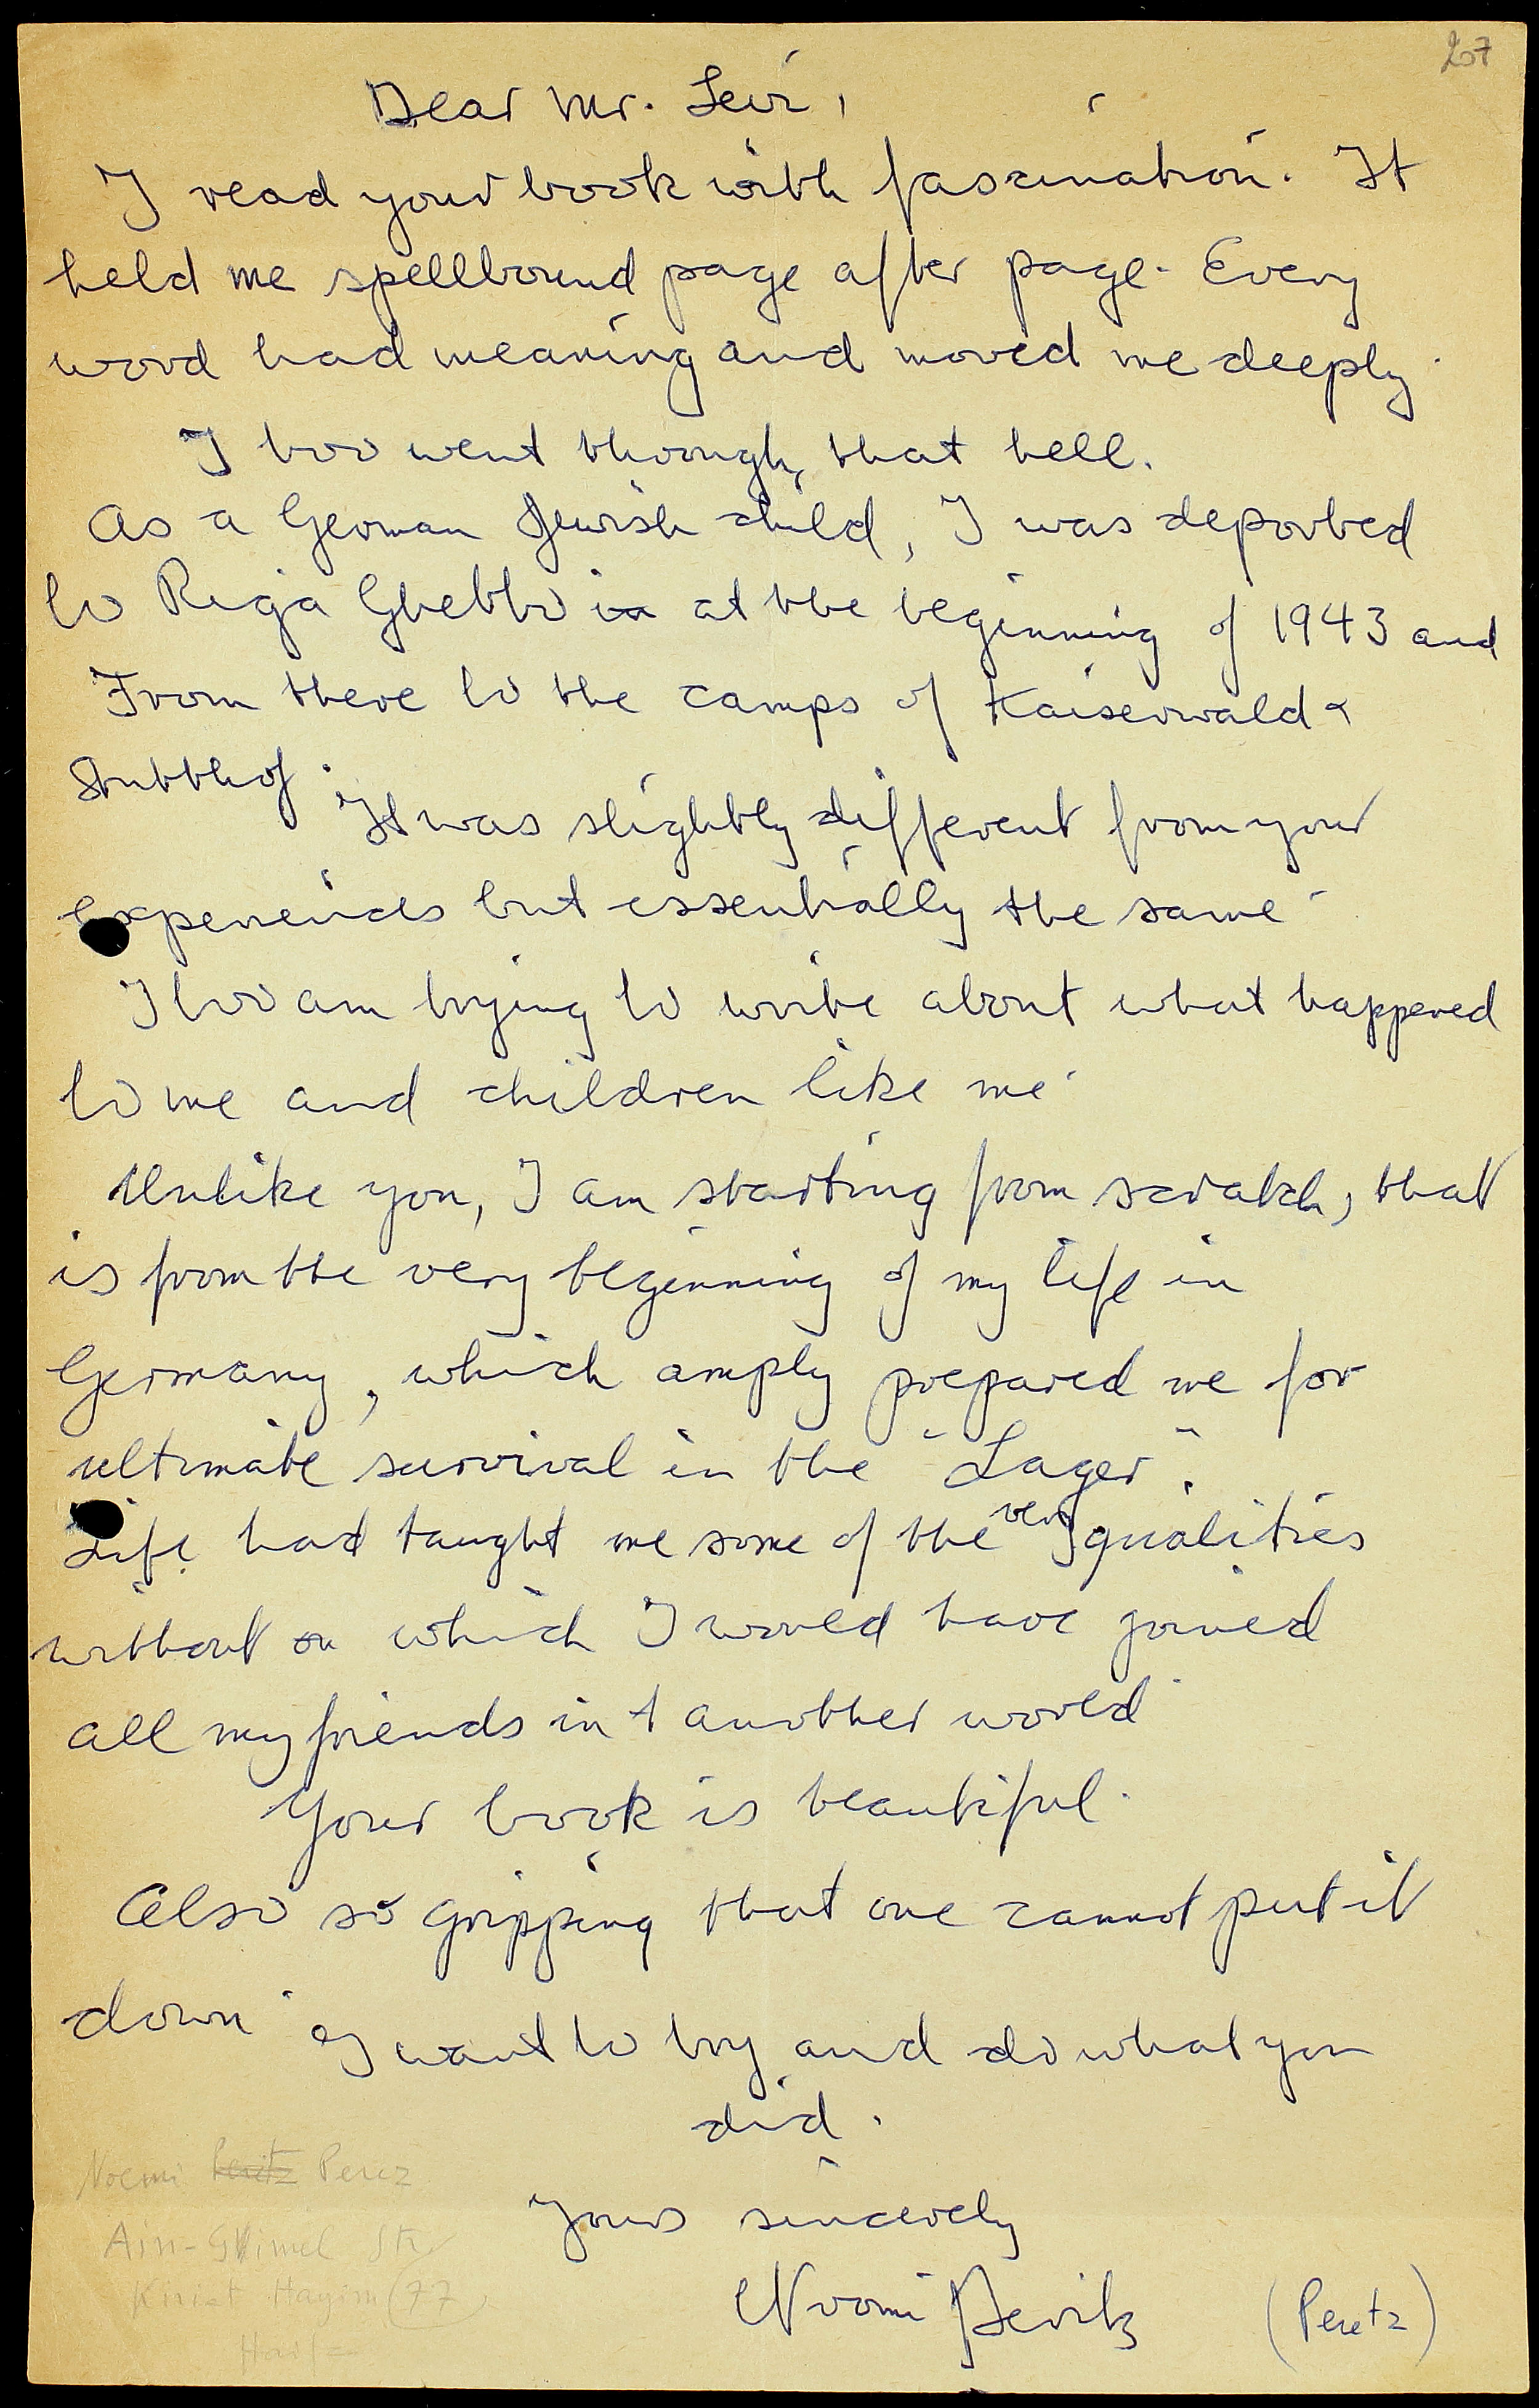 207
Dear Mr. Levi,
I read your book with fascination. It
held me spellbound page after page. Every
word had meaning and moved me deeply.
I too went through, that hell.
As a German Jewish child, I was deported
to Riga Ghetto in at the beginning of 1943 and
From there to the camps of Kaiserwald &
Stutthof.
It was slightly different from your
experiences but essentially the same.
I too am trying to write about what happened
to me and children like me.
Unlike you, I am starting from scratch, that
is from the very beginning of my life in
Germany, which amply prepared me for
ultimate survival in the "Lager".
Life had taught me some of the very qualities
without which I would have joined
all my friends in another world.
Your book is beautiful.
Also so gripping that one cannot put it
down.
I want to try and do what you
did.
Yours sincerely
Noomi Peritz (Peretz)
Noemi Peritz Perez
Ain-Gimel Str
Kiriat Hayim (77)
Haifa